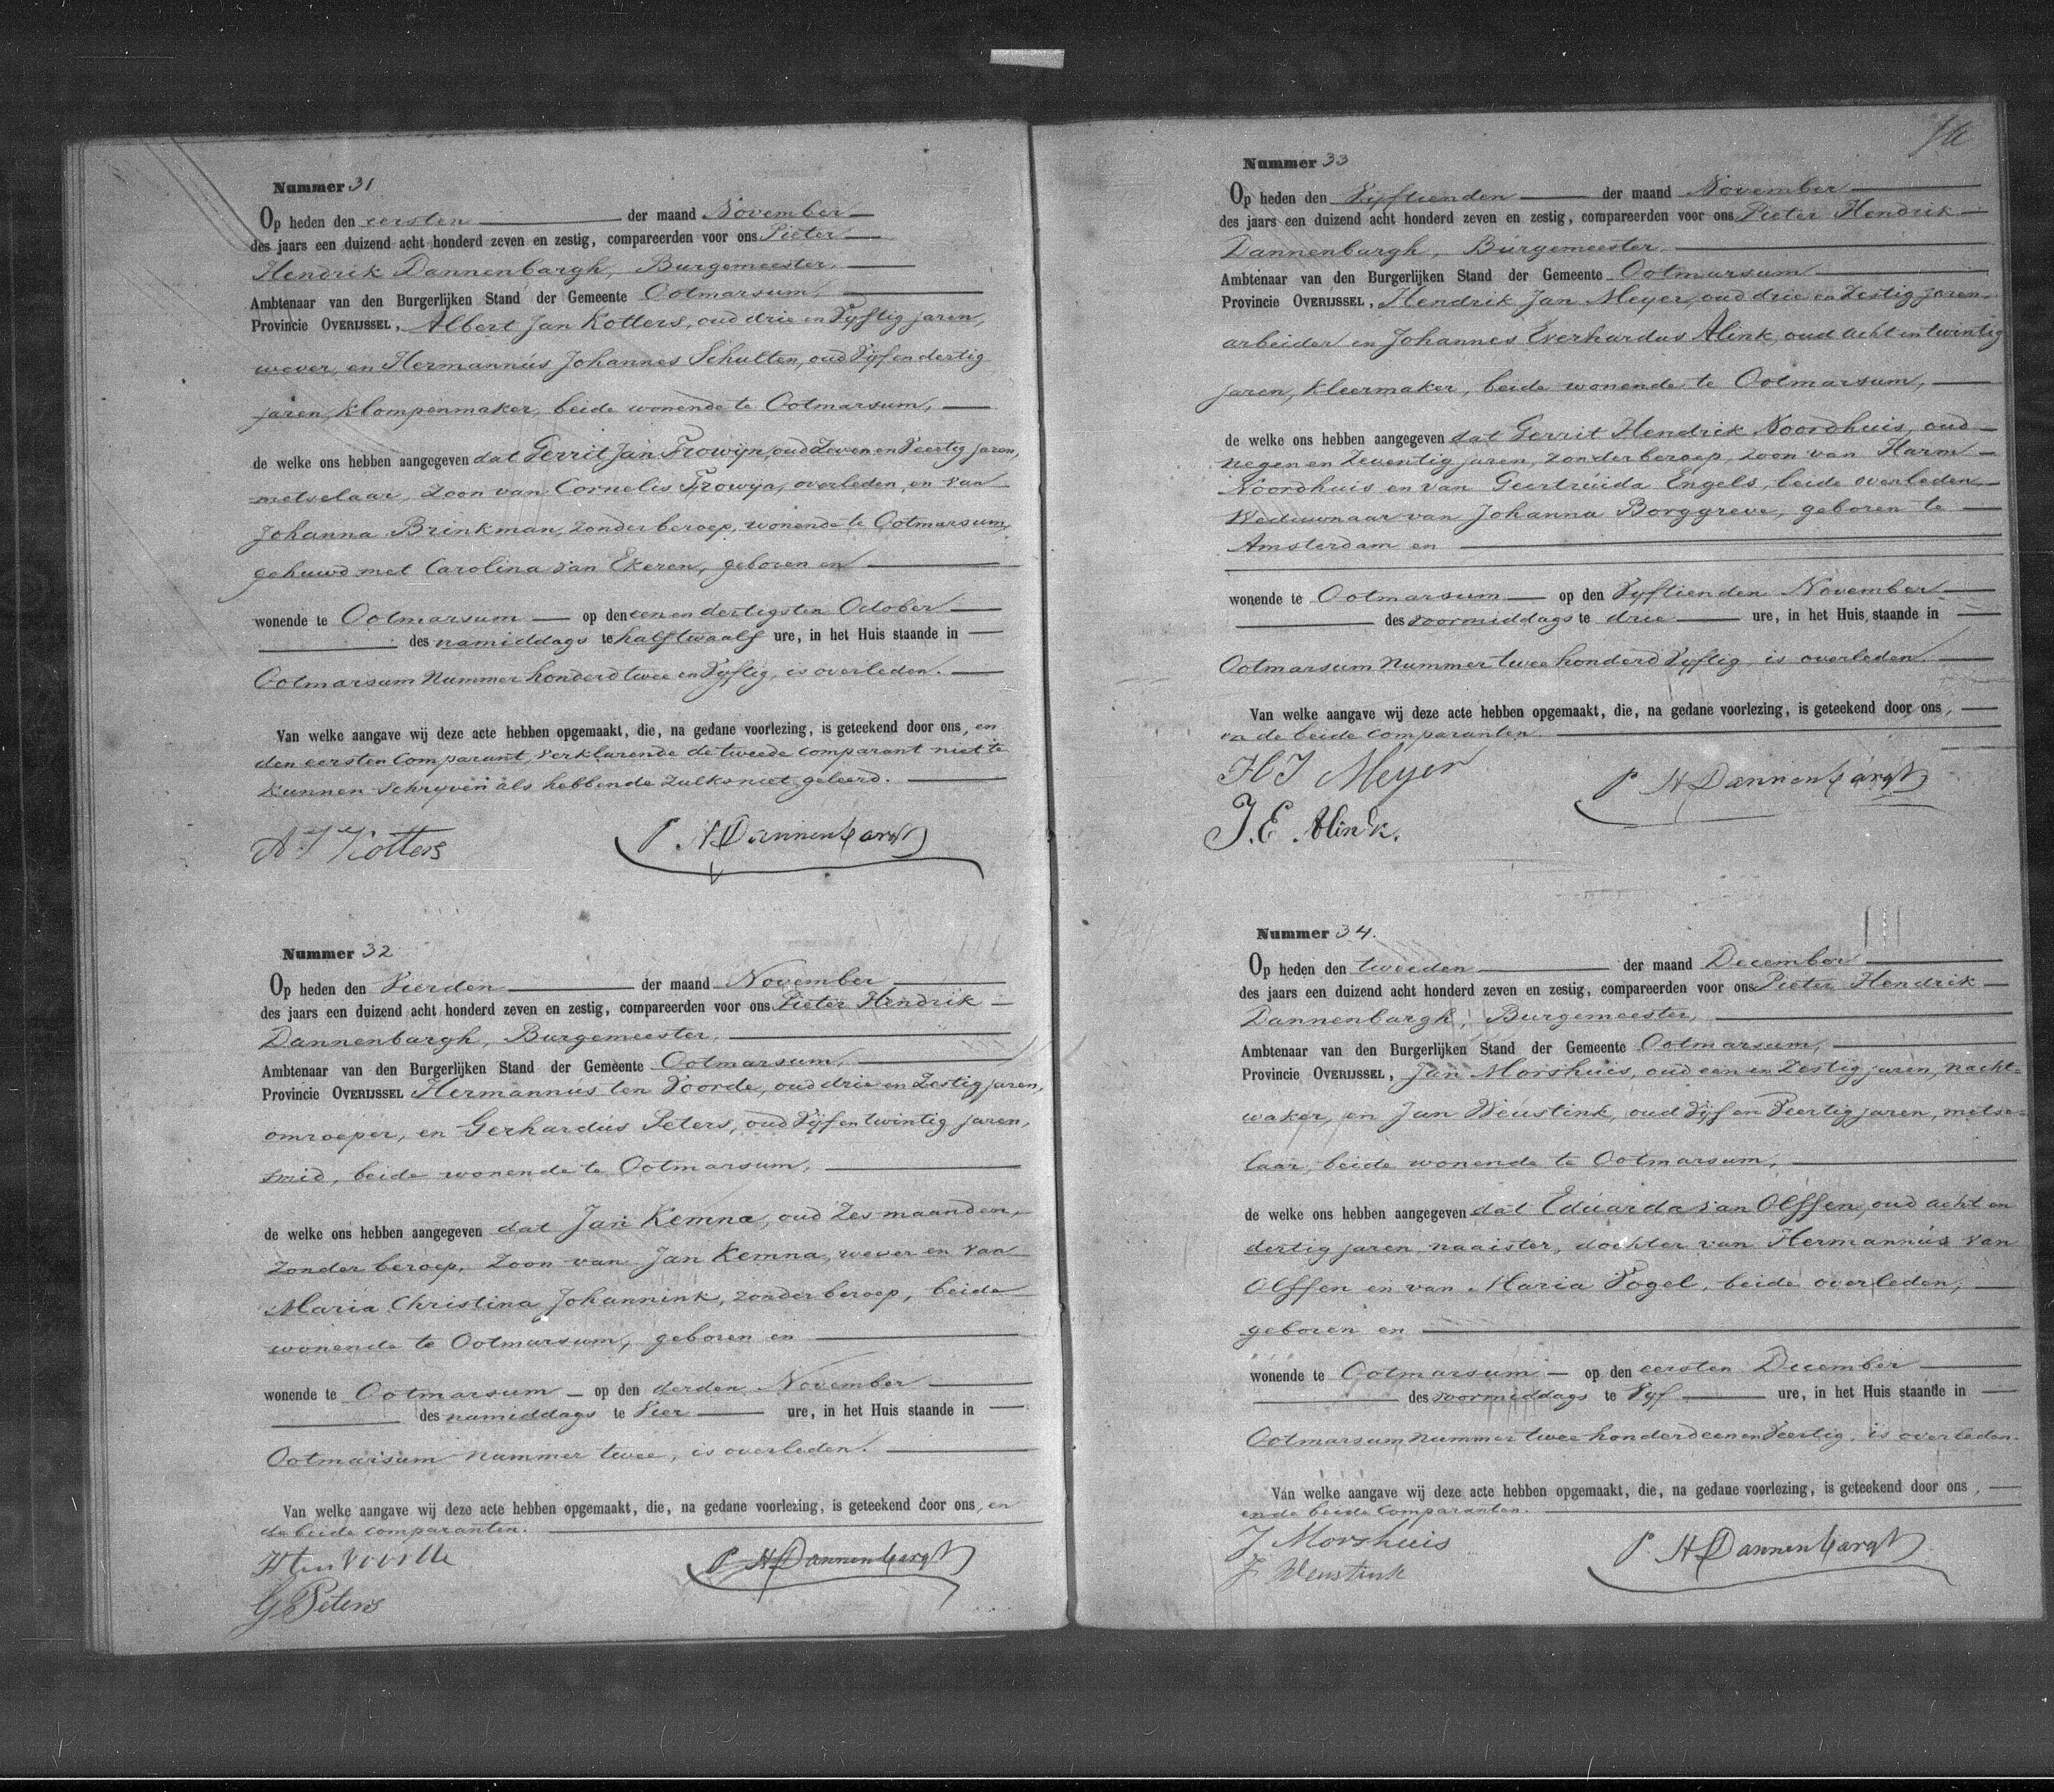 Nummer 31
Op heden den eersten der maand November
des jaars een duizend acht honderd zeven en zestig, compareerden voor ons Pieter
Hendrik Dannenbargh, Burgemeester,
Ambtenaar van den Burgerlijken Stand der Gemeente Ootmarsum,
Provincie OVERIJSSEL, Albert Jan Kotters, oud drie en Vyftig jaren,
wever, en Hermannus Johannes Schulten, oud Vijf en dertig
jaren, klompenmaker, beide wonende te Ootmarsum,
de welke ons hebben aangegeven dat Gerrit Jan Frowijn, oud Zeven en Veertig jaren,
metselaar, Zoon van Cornelis Frowijn, overleden, en van
Johanna Brinkman, zonder beroep, wonende te Ootmarsum,
gehuwd met Carolina van Ekeren, geboren en
wonende te Ootmarsum op den een en dertigsten October
des namiddags te half twaalf ure, in het Huis staande in
Ootmarsum Nummer honderd twee en Vyftig, is overleden.
Van welke aangave wij deze acte hebben opgemaakt, die, na gedane voorlezing, is geteekend door ons, en
den eersten Comparant, Verklarende de tweede comparant niet te
kunnen schryven als hebbende zulks niet geleerd.
A J Kotters
P. H Dannenbargh
Nummer 32
Op heden den Vierden der maand November
des jaars een duizend acht honderd zeven en zestig, compareerden voor ons Pieter Hendrik
Dannenbargh, Burgemeester,
Ambtenaar van den Burgerlijken Stand der Gemeente Ootmarsum,
Provincie OVERIJSSEL Hermannus ten Voorde, oud drie en Zestig jaren,
omroeper, en Gerhardus Peters, oud Vijf en twintig jaren,
smid, beide wonende te Ootmarsum,
de welke ons hebben aangegeven dat Jan Kemna, oud Zes maanden,
Zonder beroep, Zoon van Jan Kemna, wever en van
Maria Christina Johannink, zonder beroep, beide
wonende te Ootmarsum, geboren en
wonende te Ootmarsum op den derden November
des namiddags te Vier ure, in het Huis staande in
Ootmarsum Nummer twee, is overleden.
Van welke aangave wij deze acte hebben opgemaakt, die, na gedane voorlezing, is geteekend door ons, en
de beide comparanten.
H ten Voorde
P H Dannenbargh
G Peters
Nummer 33
Op heden den Vyftienden der maand November
des jaars een duizend acht honderd zeven en zestig, compareerden voor ons Pieter Hendrik
Dannenbargh, Burgemeester,
Ambtenaar van den Burgerlijken Stand der Gemeente Ootmarsum
Provincie OVERIJSSEL, Hendrik Jan Meyer, oud drie en Zestig jaren,
arbeider en Johannes Everhardus Alink, oud acht en twintig
jaren, kleermaker, beide wonende te Ootmarsum,
de welke ons hebben aangegeven dat Gerrit Hendrik Noordhuis, oud
negen en Zeventig jaren, zonder beroep, zoon van Harm
Noordhuis en van Geertruida Engels, beide overleden,
Weduwnaar van Johanna Borggreve, geboren te
Amsterdam en
wonende te Ootmarsum op den Vyftienden November
des voormiddags te drie ure, in het Huis staande in
Ootmarsum Nummer twee honderd Vyftig, is overleden.
Van welke aangave wij deze acte hebben opgemaakt, die, na gedane voorlezing, is geteekend door ons,
en de beide Comparanten.
H J Meyer
P H Dannenbargh
J. E. Alink.
Nummer 34.
Op heden den tweeden der maand December
des jaars een duizend acht honderd zeven en zestig, compareerden voor ons Pieter Hendrik
Dannenbargh, Burgemeester,
Ambtenaar van den Burgerlijken Stand der Gemeente Ootmarsum,
Provincie OVERIJSSEL, Jan Morshuis, oud een en Zestig jaren, nacht=
waker, en Jan Weustink, oud Vijf en Veertig jaren, metse=
laar, beide wonende te Ootmarsum,
de welke ons hebben aangegeven dat Eduarda van Olffen, oud acht en
dertig jaren, naaister, dochter van Hermannus van
Olffen en van Maria Vogel, beide overleden,
geboren en
wonende te Ootmarsum op den eersten December
des voormiddags te Vyf ure, in het Huis staande in
Ootmarsum Nummer twee honderd een en Veertig, is overleden.
Van welke aangave wij deze acte hebben opgemaakt, die, na gedane voorlezing, is geteekend door ons,
en de beide Comparanten.
J Morshuis
P. H Dannenbargh
J Weustink